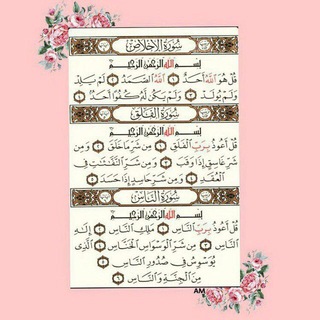 سُورَةُ الإِخْلَاصِ
بِسْمِ اللَّهِ الرَّحْمَٰنِ الرَّحِيمِ
قُلْ هُوَ اللَّهُ أَحَدٌ ١ اللَّهُ الصَّمَدُ ٢ لَمْ يَلِدْ
وَلَمْ يُولَدْ ٣ وَلَمْ يَكُن لَّهُ كُفُوًا أَحَدٌ ٤
سُورَةُ الفَلَقِ
بِسْمِ اللَّهِ الرَّحْمَٰنِ الرَّحِيمِ
قُلْ أَعُوذُ بِرَبِّ الْفَلَقِ ١ مِن شَرِّ مَا خَلَقَ ٢ وَمِن
شَرِّ غَاسِقٍ إِذَا وَقَبَ ٣ وَمِن شَرِّ النَّفَّاثَاتِ فِي
الْعُقَدِ ٤ وَمِن شَرِّ حَاسِدٍ إِذَا حَسَدَ ٥
سُورَةُ النَّاسِ
بِسْمِ اللَّهِ الرَّحْمَٰنِ الرَّحِيمِ
قُلْ أَعُوذُ بِرَبِّ النَّاسِ ١ مَلِكِ النَّاسِ ٢ إِلَٰهِ
النَّاسِ ٣ مِن شَرِّ الْوَسْوَاسِ الْخَنَّاسِ ٤ الَّذِي
يُوَسْوِسُ فِي صُدُورِ النَّاسِ ٥
مِنَ الْجِنَّةِ وَالنَّاسِ ٦
AM